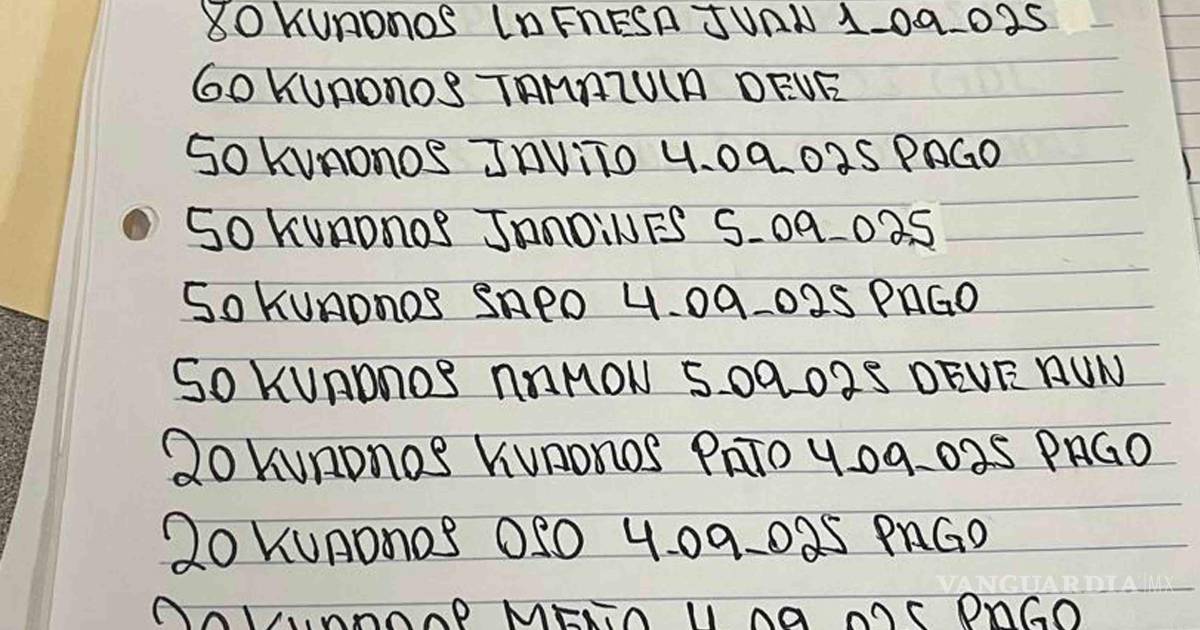 80 KUADROS LA FRESA JUAN 1-09-025
60 KUADROS TAMAZULA DEVE
50 KUADROS JAVITO 4-09-025 PAGO
50 KUADROS JARDINES 5-09-025
50 KUADROS SAPO 4-09-025 PAGO
50 KUADROS RAMON 5-09-025 DEVE AUN
20 KUADROS KUADROS PATO 4-09-025 PAGO
20 KUADROS OSO 4-09-025 PAGO
20 KUADROS MEÑO 4-09-025 PAGO
VANGUARDIA MX